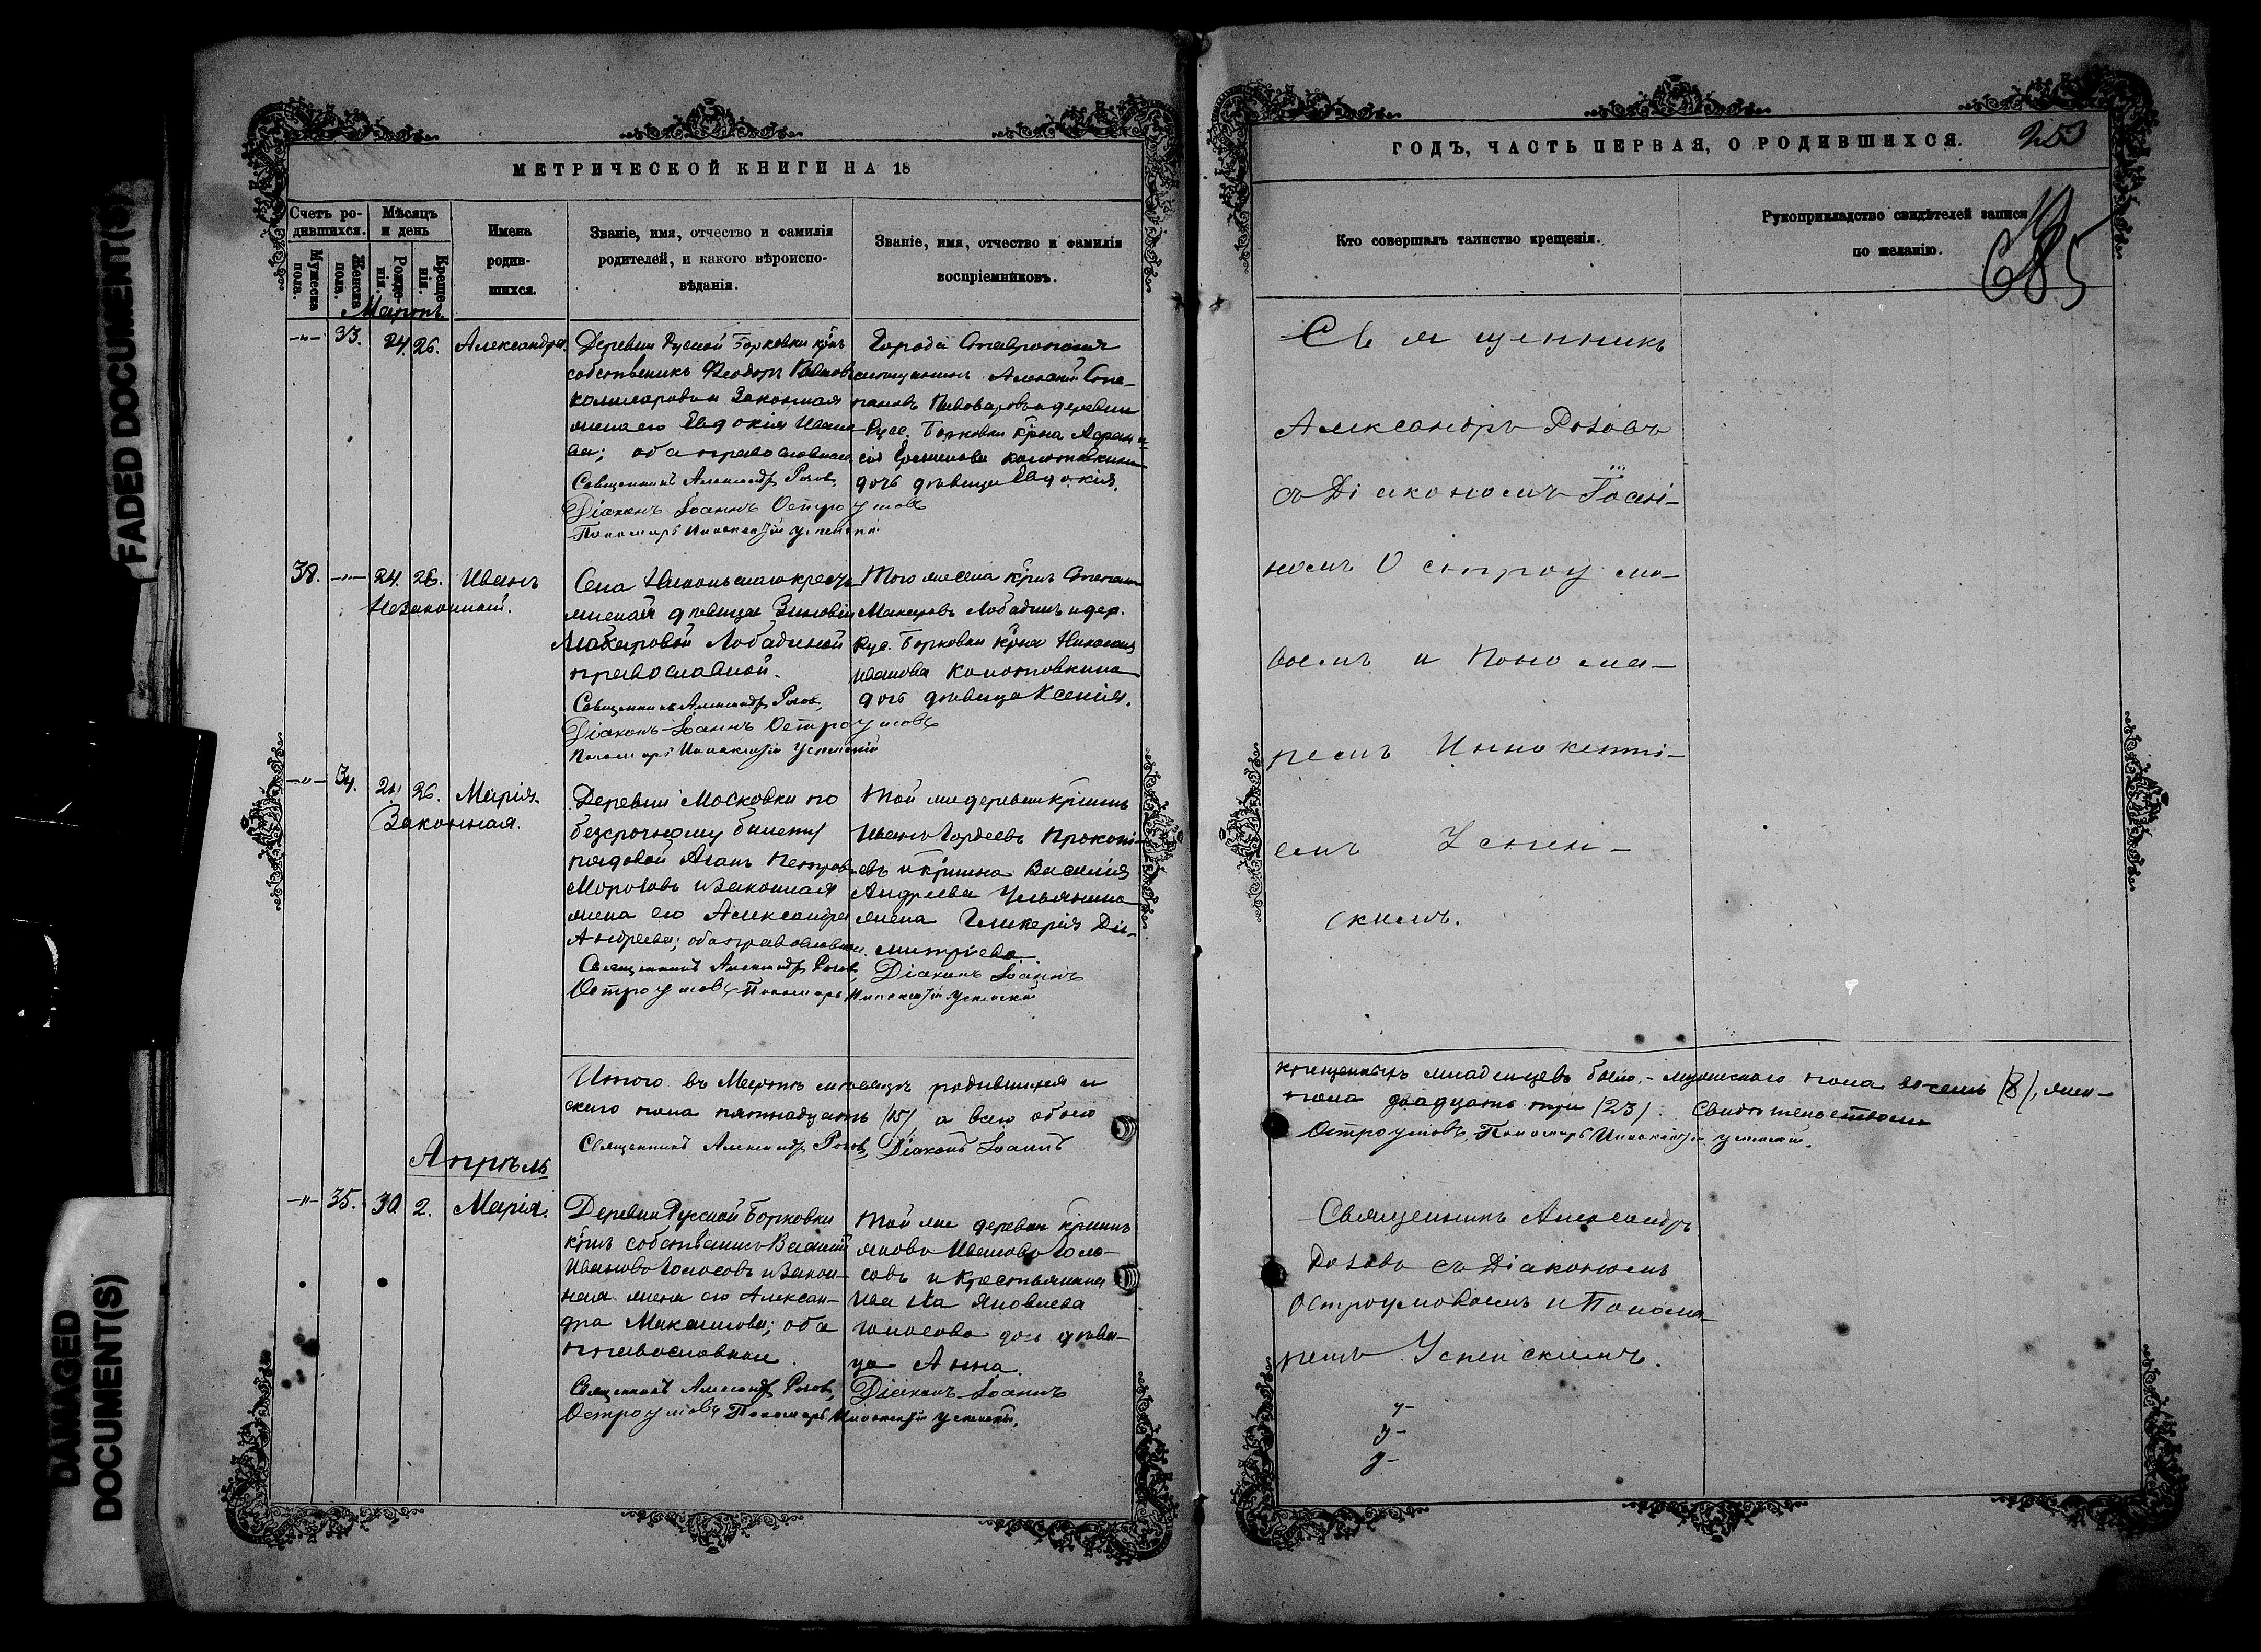 МЕТРИЧЕСКОЙ КНИГИ НА 18
Счетъ ро-
дившихся.
Мѣсяцъ
и день
Мужеска
пола.
Женска
пола.
Рожде-
нія.
Креще-
нія.
Имена
родив-
шихся.
Званіе, имя, отчество и фамилія
родителей, и какого вѣроиспо-
вѣданія.
Званіе, имя, отчество и фамилія
воспріемниковъ.
Мартъ.
-"- 33. 24. 26. Александра.
Деревни Руской Борковки
собственникъ Ѳеодоръ
и Законная
жена его Евдокія Ивано
ва; оба православные
Священникъ Александръ Розов,
Діаконъ Іоаннъ Остроумовъ
Пономарь Инокентій Успенскій
Города Ставрополя
Алексѣй Сте-
пановъ Пивоваровъ и деревни
Руск. Борковки
дочь дѣвица Евдокія.
38. -"- 24. 26. Иванъ
Незаконный.
Села Никольскаго кресть
дѣвица Зиновія
Макаровой Лобадиной
православной.
Священникъ Александръ Розов,
Діаконъ Іоаннъ Остроумовъ
Пономарь Инокентій Успенскій
Того же села Степан
Макаровъ Лобадинъ и дер.
Рус. Борковки
Иванова
дочь дѣвица Ксенія.
-"- 34. 24. 26. Марія.
Законная.
Деревни Московки по
безсрочному билету
рядовой Петров
Морозовъ и Законная
жена его Александра
Андреева; оба православные.
Священникъ Александръ Розов,
Остроумовъ Пономарь Инокентій Успенскій
Той же деревни
Иванъ Гордеевъ Прокопі-
евъ и Василія
Андреева Ульянина
жена Гликерія Ди-
митріева.
Діаконъ Іоаннъ
Итого въ Мартѣ мѣсяцѣ родившихся и
скаго пола пятнадцать (15), а всего обоего
Священникъ Александръ Розов, Діаконъ Іоаннъ
Апрѣль
-"- 35. 30 2. Марія.
Деревни Русской Борковки
собственникъ Василій
Ивановъ Голосовъ и Закон-
ная жена его Алексан-
дра Максимова; оба
православные.
Священникъ Александръ Розов,
Остроумовъ Пономарь Инокентій Успенскій.
Той же деревни
Яковъ Ивановъ Голо-
совъ и Крестьянина
Ивана Яковлева
Голосова дочь дѣви-
ца Анна.
Діаконъ Іоаннъ
ГОДЪ, ЧАСТЬ ПЕРВАЯ, О РОДИВШИХСЯ.
253
Кто совершалъ таинство крещенія.
Рукоприкладство свидѣтелей записи
по желанію.
685
Священникъ
Александръ Розовъ
съ Діакономъ Іоан-
номъ Остроумо-
вымъ и Понома-
ремъ Иннокенті-
емъ Успен-
скимъ.
крещенныхъ младенцевъ было, - мужескаго пола восемь (8), жен-
пола двадцать три (23). Свидѣтельствуемъ
Остроумовъ, Пономарь Инокентій Успенскій.
Священникъ Александръ
Розовъ съ Діакономъ
Остроумовымъ и Понома-
ремъ Успенскимъ.
FADED DOCUMENT(S)
DAMAGED
DOCUMENT(S)